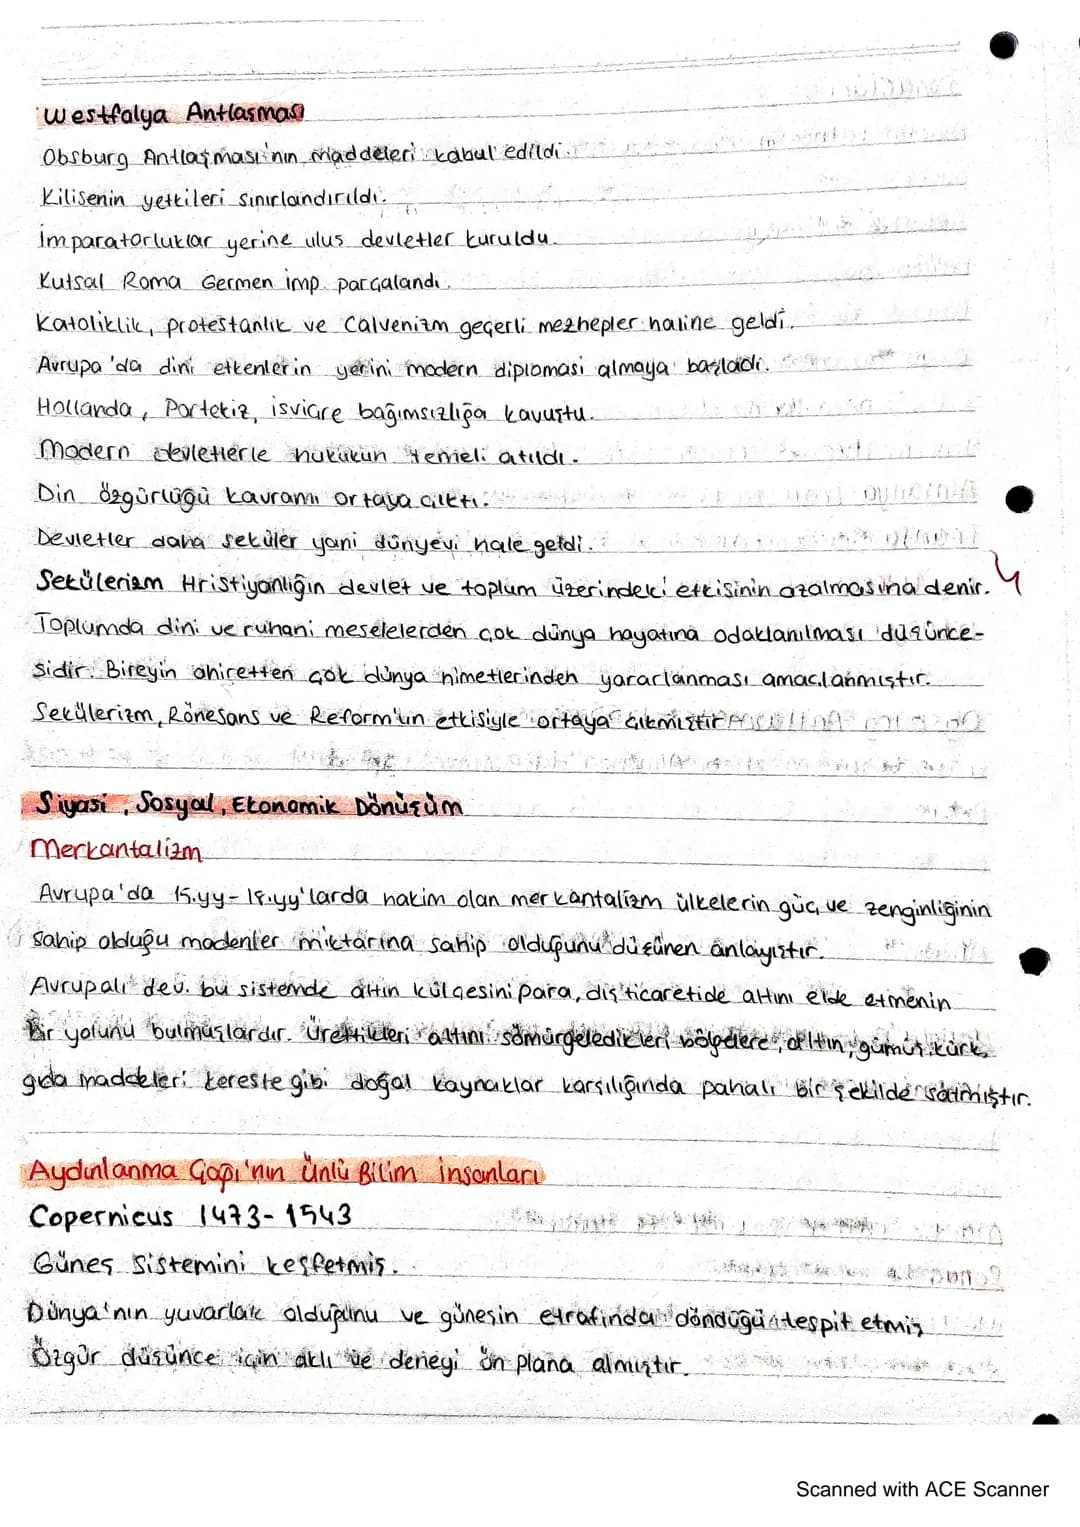 Westfalya Antlaşması
Obsburg Antlaşması'nın maddeleri kabul edildi.
Kilisenin yetkileri sınırlandırıldı.
İmparatorluklar yerine ulus devletler kuruldu.
Kutsal Roma Germen imp. parçalandı.
Katoliklik, protestanlık ve Calvenizm geçerli mezhepler haline geldi.
Avrupa'da dini etkenlerin yerini modern diplomasi almaya başladı.
Hollanda, Portekiz, isviçre bağımsızlığa kavuştu.
Modern devletlerle hukukun temeli atıldı.
Din özgürlüğü kavramı ortaya çıktı.
Devletler daha seküler yani dünyevi hale geldi.
Sekülerizm Hristiyanlığın devlet ve toplum üzerindeki etkisinin azalmasına denir.
Toplumda dini ve ruhani meselelerden çok dünya hayatına odaklanılması düşünce-
sidir. Bireyin ahiretten çok dünya nimetlerinden yararlanması amaçlanmıştır.
Sekülerizm, Rönesans ve Reform'un etkisiyle ortaya çıkmıştır
Siyasi, Sosyal, Ekonomik Dönüşüm
Merkantalizm
Avrupa'da 15.yy-18.yy'larda hakim olan merkantalizm ülkelerin güç ve zenginliğinin
sahip olduğu madenler miktarına sahip olduğunu düşünen anlayıştır.
Avrupalı dev. bu sistemde altın külçesini para, dış ticaretide altını elde etmenin
bir yolunu bulmuşlardır. Ürettikleri altını sömürgeledikleri bölgelere, altın, gümüş, kürk,
gıda maddeleri kereste gibi doğal kaynaklar karşılığında pahalı bir şekilde satmıştır.
Aydınlanma Çağı'nın Ünlü Bilim insanları
Copernicus 1473-1543
Güneş Sistemini keşfetmiş.
Dünya'nın yuvarlak olduğunu ve güneşin etrafında döndüğü tespit etmiş
Özgür düşünce için aklı ve deneyi ön plana almıştır.
Scanned with ACE Scanner